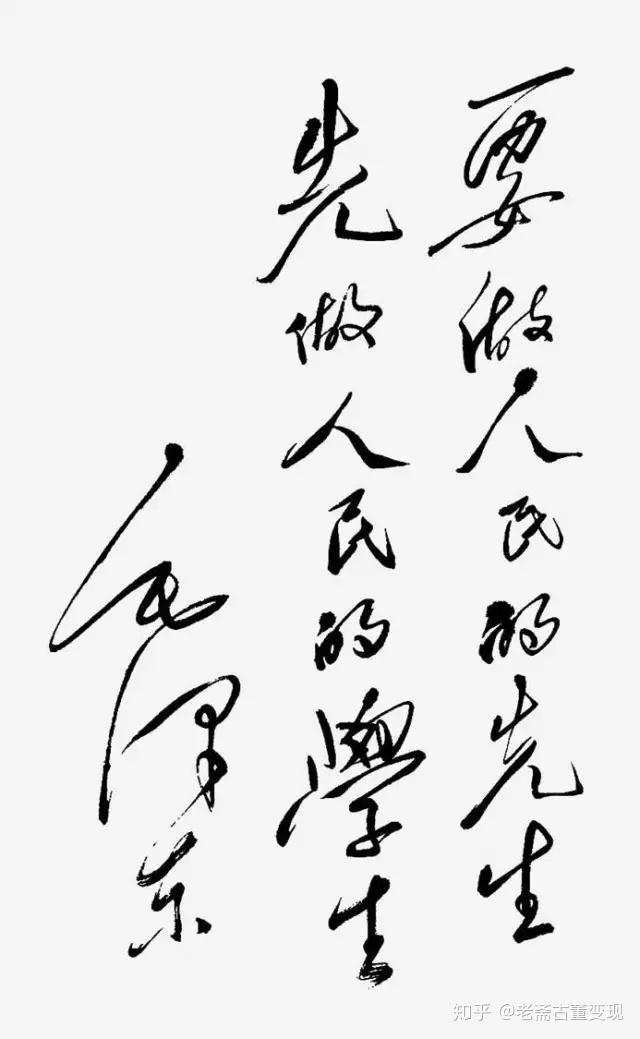 要做人民的先生
先做人民的學生
毛泽东
知乎 @老斋古董变现